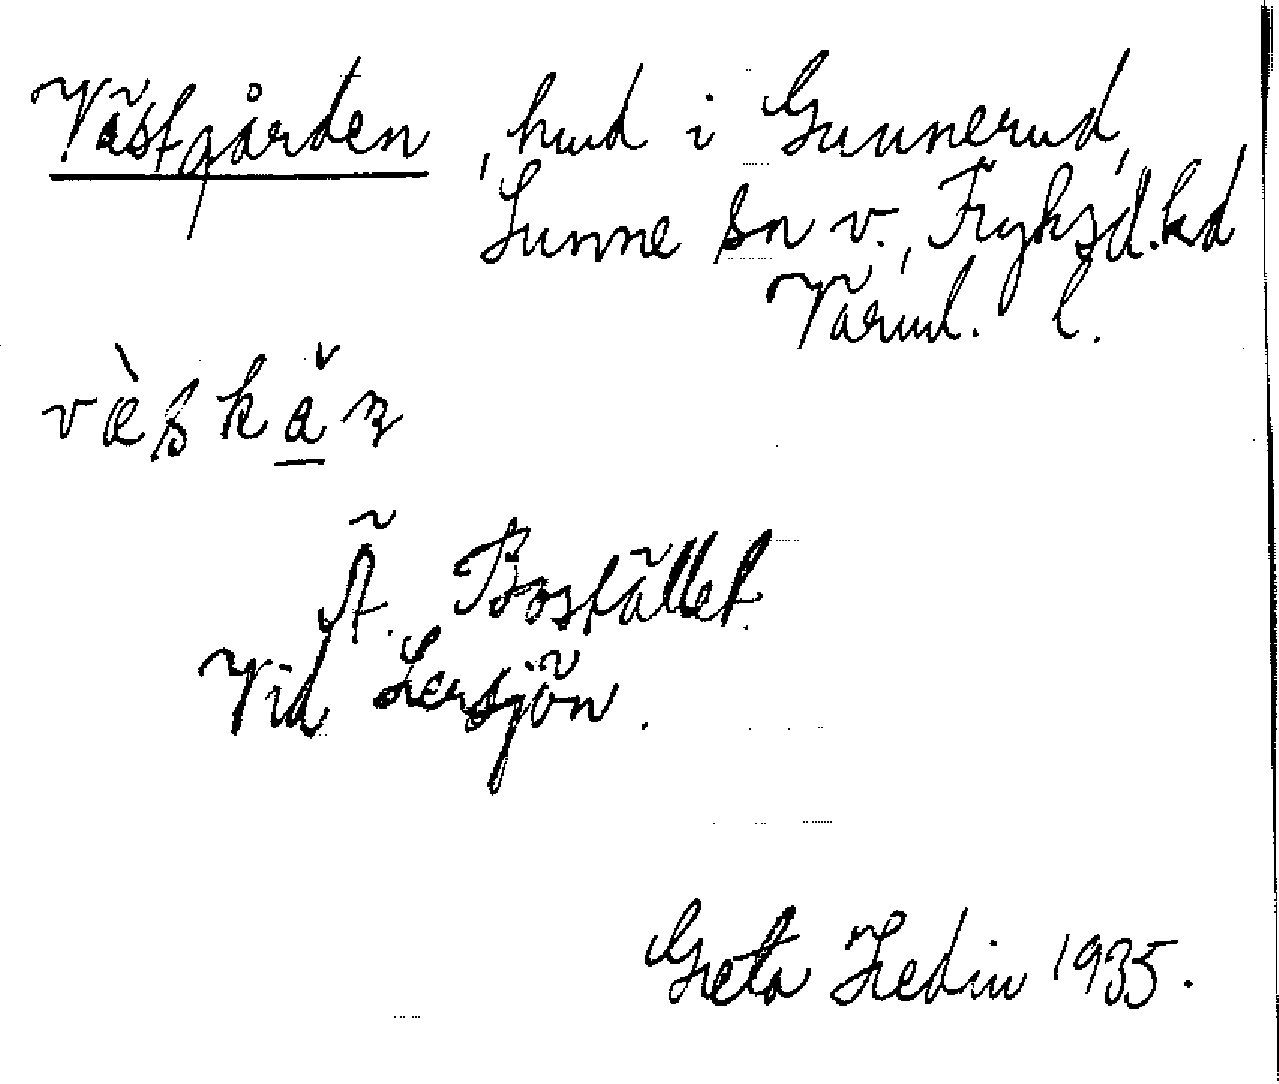 Västgården, hmd i Gunnerud,
Sunne sn v., Fryksd. hd
Värml. l.
vèskǎṇ
Ä. Bostället.
Vid Lersjön.
Greta Hedin 1935.